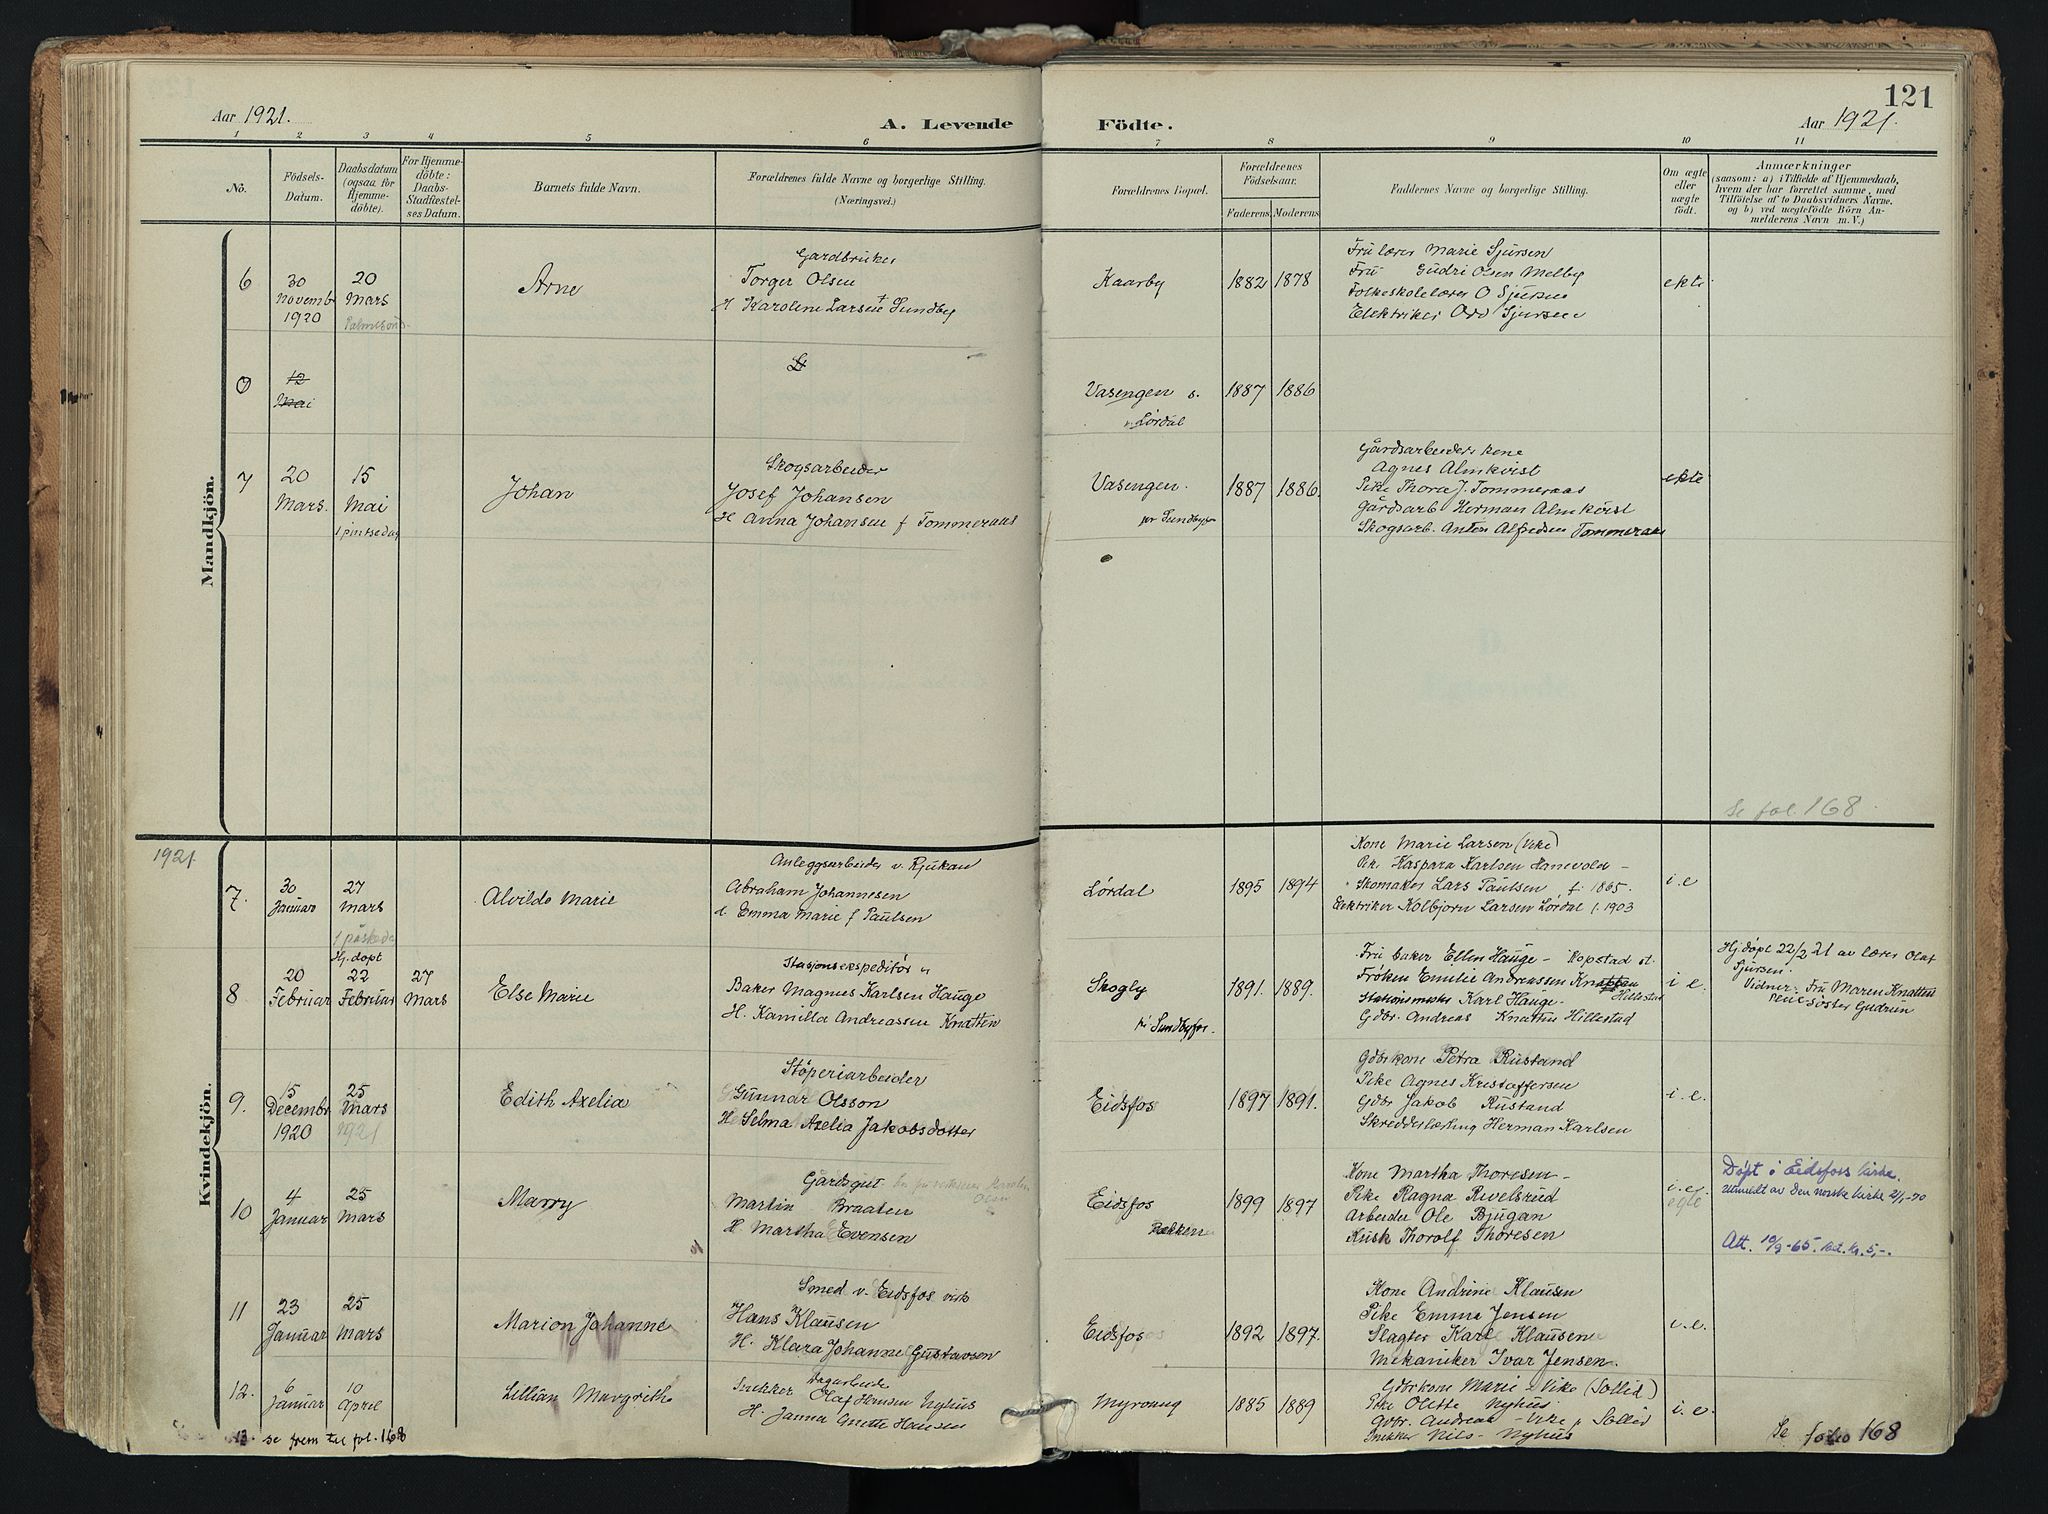 Aar 1921.
A. Levende Födte.
121
Aar 1921.
1 2 3 4 5 6 7 8 9 10 11
No.
Födsels-Datum.
Daabsdatum (ogsaa for Hjemme-döbte).
For Hjemme-döbte: Daabs-Stadfæstel-ses Datum.
Barnets fulde Navn.
Forældrenes fulde Navne og borgerlige Stilling.
(Næringsvei.)
Forældrenes Bopæl.
Forældrenes Födselsaar.
Faderens Moderens
Faddernes Navne og borgerlige Stilling.
Om ægte eller uægte födt.
Anmærkninger
(saasom: a) i Tilfælde af Hjemmedaab,
hvem der har forrettet samme, med
Tilföielse af to Daabsvidners Navne,
og b) ved uægtefödte Börn An-
melderens Navn m. V.)
Mandkjön.
6
30 Novemb 1920
20 Mars
Palmesönd
Arne
Gardbruker
Torger Olsen
H Karoline Larsen f Sundby
Kaarby
1882 1878
Fru lærer Marie Sjursen
Fru Gudri Osen Melby
Folkeskolelærer O Sjursen
Elektriker Odd Sjursen
ekte
12 Mai
Vasengen s.
Lørdal
1887 1886
7
20 Mars.
15 Mai
1 pintsedag
Johan
Skogsarbeider
Josef Johansen
H Anna Johansen f Tommeraas
Vasengen.
pr Sundbyfos
1887 1886.
Gårdsarbeiderskone
Agnes Almkvist
Pike Thora J. Tommeraas
Gårdsarb Herman Almkvist
Skogsarb. Anton Alfredsen Tommeraas
ekte
Se fol. 168
Kvindekjön.
1921.
7.
30 Januar
27 Mars
1 påskedag
Alvilde Marie
Anleggsarbeider v. Rjukan
Abraham Johannesen
H. Emma Marie f Paulsen
Lördal
1895 1894
Kone Marie Larsen (Vike)
Pk. Kaspara Karlsen Hanevold
Skomaker Lars Paulsen f. 1865.
Elektriker Kolbjorn Larsen Lördal f. 1903
i. e
8
20 Februar
Hj. döpt
22 Februar
27 Mars
Else Marie
Stasjonsekspeditör
Baker Magnus Karlsen Hauge
H. Kamilla Andreassen Knatten
Skogly
pr Sundbyfos.
1891. 1889.
Fru baker Ellen Hauge - Kopstad st.
Fröken Emilie Andreassen Knatten
Hillestad
Stationsmester Karl Hauge.
Gdbr. Andreas Knatten Hillestad
i e.
Hj. döpt 22/2 21 av lærer Olaf
Sjursen.
Vidner: Fru Maren Knatten
Pleiesöster Gudrun
9.
15 Decembr 1920
25 Mars 1921
Edith Axelia
Stöperiarbeider
Gunnar Olsson
H Selma Axelia Jakobsdotter
Eidsfos
1897 1891.
Gdbrkone Petra Rustand
Pike Agnes Kristoffersen
Gdbr Jakob Rustand
Skredderlærling Herman Karlsen
i. e.
10
4 Januar
25 Mars
Marry
Gårdsgut
Martin Braaten
H Martha Evensen
Eidsfos
Bakken
1899 1897
Kone Martha Thoresen
Pike Ragna Rivelsrud
Arbeider Ole Bjugan
Kusk Thorolf Thoresen
i. e.
egte
Döpt i Eidsfoss kirke.
Utmeldt av den norske kirke 2/1-70
Att. 10/9-65. bet. kr. 5,-.
11
23 Januar
25 Mars
Marion Johanne
Smed v. Eidsfos verk
Hans Klausen
H. Klara Johanne Gustavsen
Eidsfos
1892 1897.
Kone Andrine Klausen
Pike Emma Jensen
Slagter Karl Klausen
Mekaniker Ivar Jensen.
i. e.
12.
6 Januar
10 April
Lillian Margrithe
Dagarbeide
Snekker Olaf Hansen Nyhus
H. Janna Anette Hansen
Myroung
1885 1889
Gdbrkone Marie Vike (Sollid)
Pike Olette Nyhus
Gdbr. Andreas Vike Sollid
Snekker Nils Nyhus
i. e.
13 se frem til fol. 168
Se folio 168